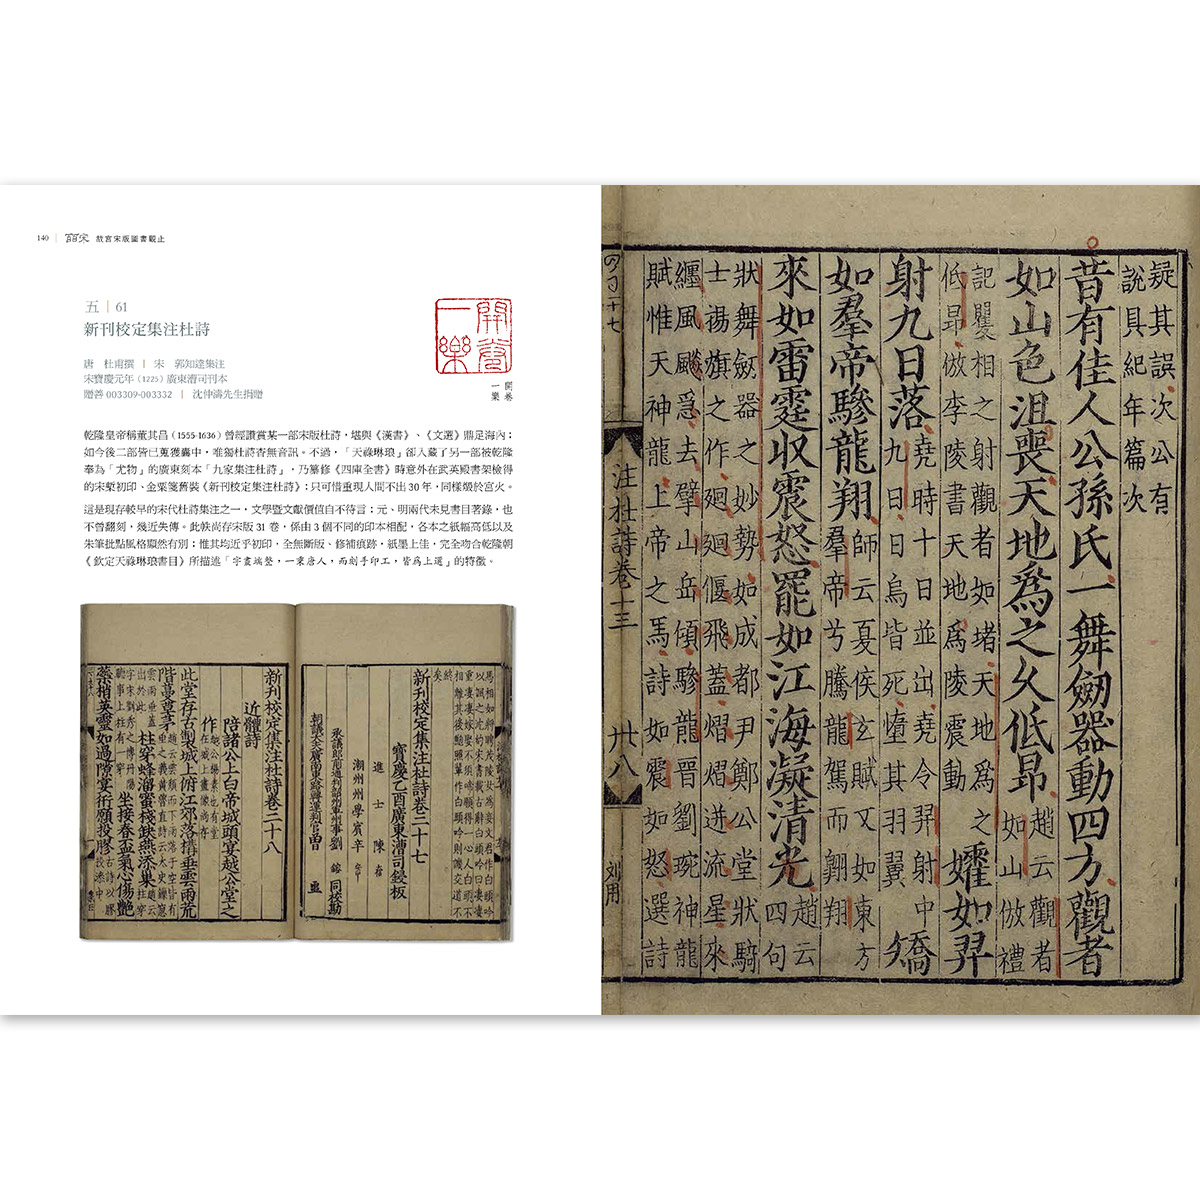 140 | 丽宋 故宮宋版圖書觀止
五 | 61
新刊校定集注杜詩
唐 杜甫撰 | 宋 郭知達集注
宋寶慶元年（1225）廣東漕司刊本
贈善 003309-003332 | 沈仲濤先生捐贈
開卷
一樂
開卷
一樂
乾隆皇帝稱董其昌（1555-1636）曾經讚賞某一部宋版杜詩，堪與《漢書》、《文選》鼎足海內；
如今後二部皆已蒐獲囊中，唯獨杜詩杳無音訊。不過，「天祿琳琅」卻入藏了另一部被乾隆
奉為「尤物」的廣東刻本「九家集注杜詩」，乃纂修《四庫全書》時意外在武英殿書架檢得
的宋槧初印、金粟箋舊裝《新刊校定集注杜詩》；只可惜重現人間不出 30 年，同樣燬於宮火。
這是現存較早的宋代杜詩集注之一，文學暨文獻價值自不待言；元、明兩代未見書目著錄，也
不曾翻刻，幾近失傳。此帙尚存宋版 31 卷，係由 3 個不同的印本相配，各本之紙幅高低以及
朱筆批點風格顯然有別；惟其均近乎初印，全無斷版、修補痕跡，紙墨上佳，完全吻合乾隆朝
《欽定天祿琳琅書目》所描述「字畫端整，一秉唐人，而刻手印工，皆為上選」的特徵。
新刊校定集注杜詩卷二十七
寶慶乙酉廣東漕司鋟板
進士 陳
潮州州學賓辛
同校勘
新刊校定集注杜詩卷二十八
近體詩
陪諸公上白帝城頭宴越公堂之
作
此堂存古製城上俯江郊落構垂雲雨荒
階蔓草茅
柱穿蜂溜蜜棧缺燕添巢
坐接春盃氣心傷艷
蘂梢英靈如過隙宴衎願投膠
疑其誤次公有
說具紀年篇次
昔有佳人公孫氏一舞劒器動四方觀者
如山色沮喪天地為之久低昂
趙云觀者
如山倣禮
記矍相之射觀者如堵天地為之
低昂倣李陵書天地為陵震動
㸌如羿
射九日落
堯時十日並出堯令羿射中
九日日烏皆死墮其羽翼
矯
如羣帝驂龍翔
師云夏侯玄賦又如東方
羣帝兮騰龍駕而翱翔
來如雷霆收震怒罷如江海凝清光
趙云
四句
狀舞劒器之妙勢如成都尹鄭公堂狀騎
士揚旗之作廻廻偃飛蓋熠熠迸流星來
纏風飈急去擘山岳傾驂龍晉劉琬神龍
賦惟天神龍上帝之馬詩如震如怒選詩
注杜詩卷十三
廿八
刘用